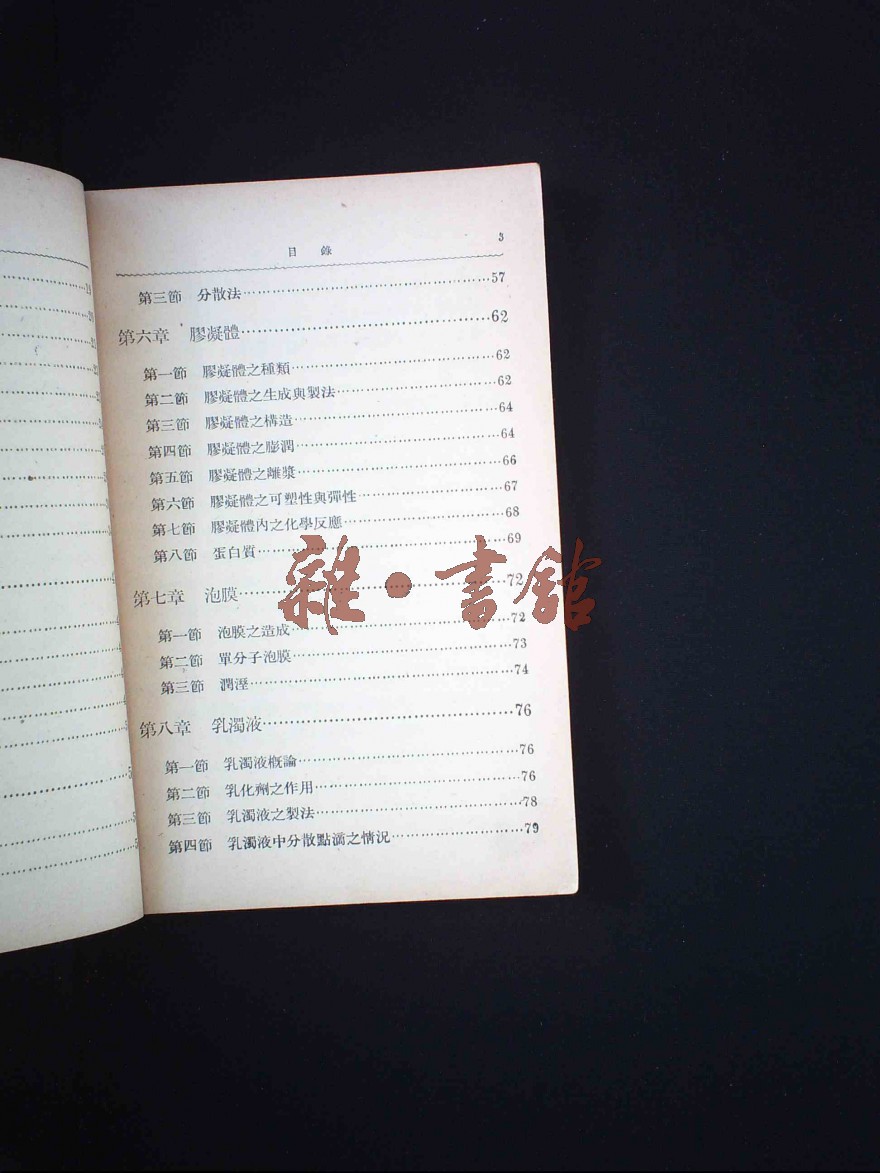 目錄 3
第三節 分散法…57
第六章 膠凝體…62
第一節 膠凝體之種類…62
第二節 膠凝體之生成與製法…62
第三節 膠凝體之構造…64
第四節 膠凝體之膨潤…64
第五節 膠凝體之離漿…66
第六節 膠凝體之可塑性與彈性…67
第七節 膠凝體內之化學反應…68
第八節 蛋白質…69
第七章 泡膜…72
第一節 泡膜之造成…72
第二節 單分子泡膜…73
第三節 潤溼…74
第八章 乳濁液…76
第一節 乳濁液槪論…76
第二節 乳化劑之作用…76
第三節 乳濁液之製法…78
第四節 乳濁液中分散點滴之情況…79
雜·書館